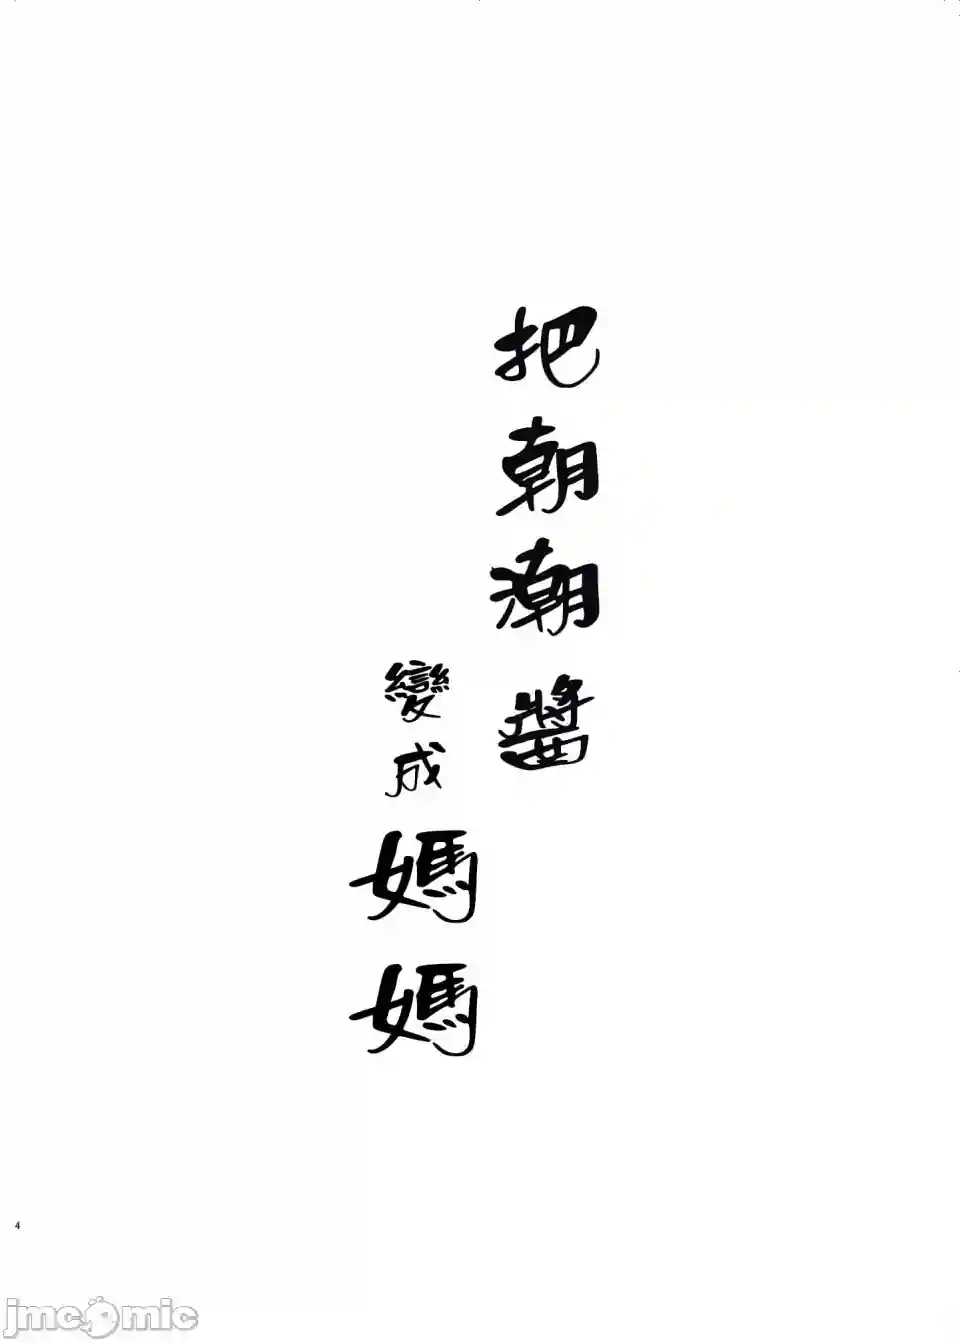 把朝潮醬
變成媽媽
4
jmcomic